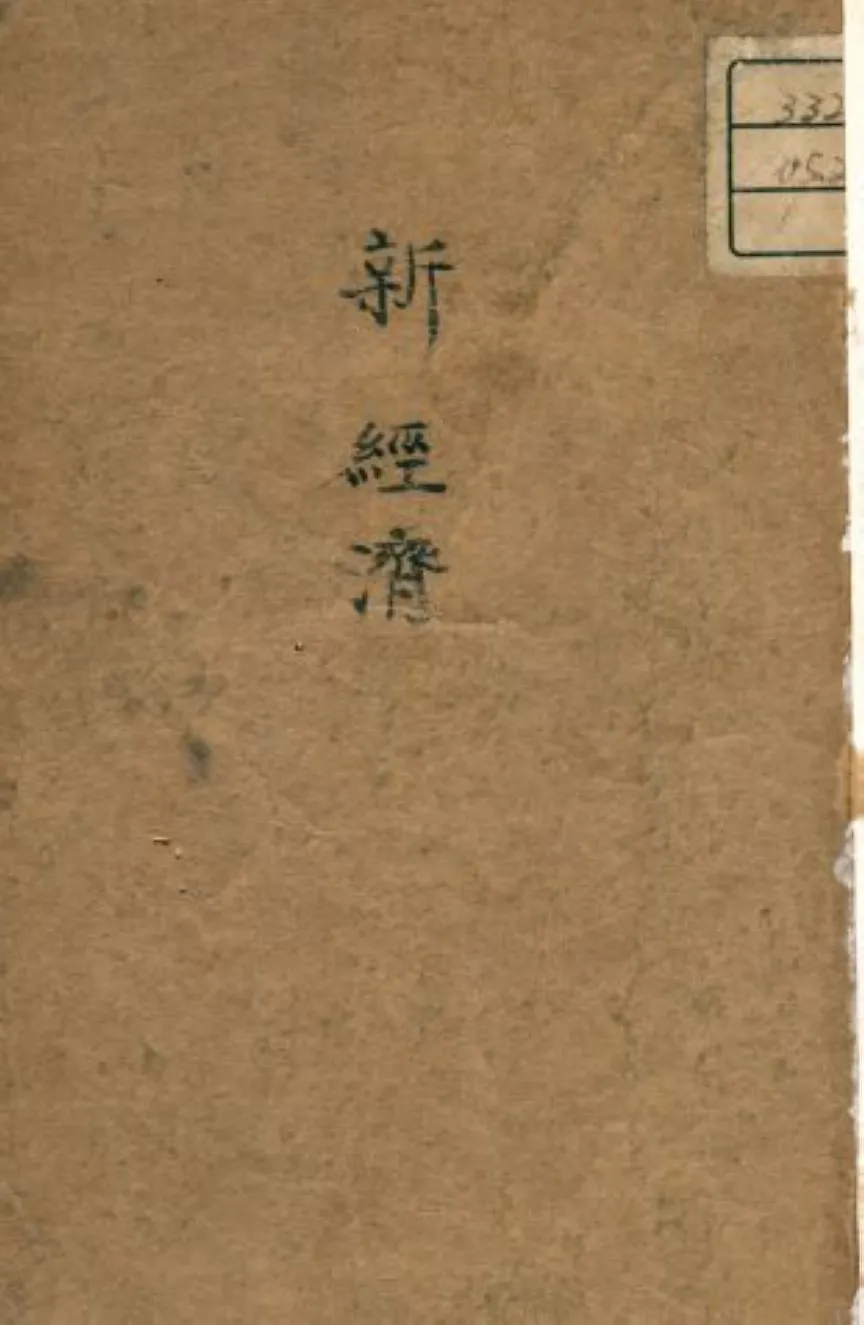 新經濟
332
052
1